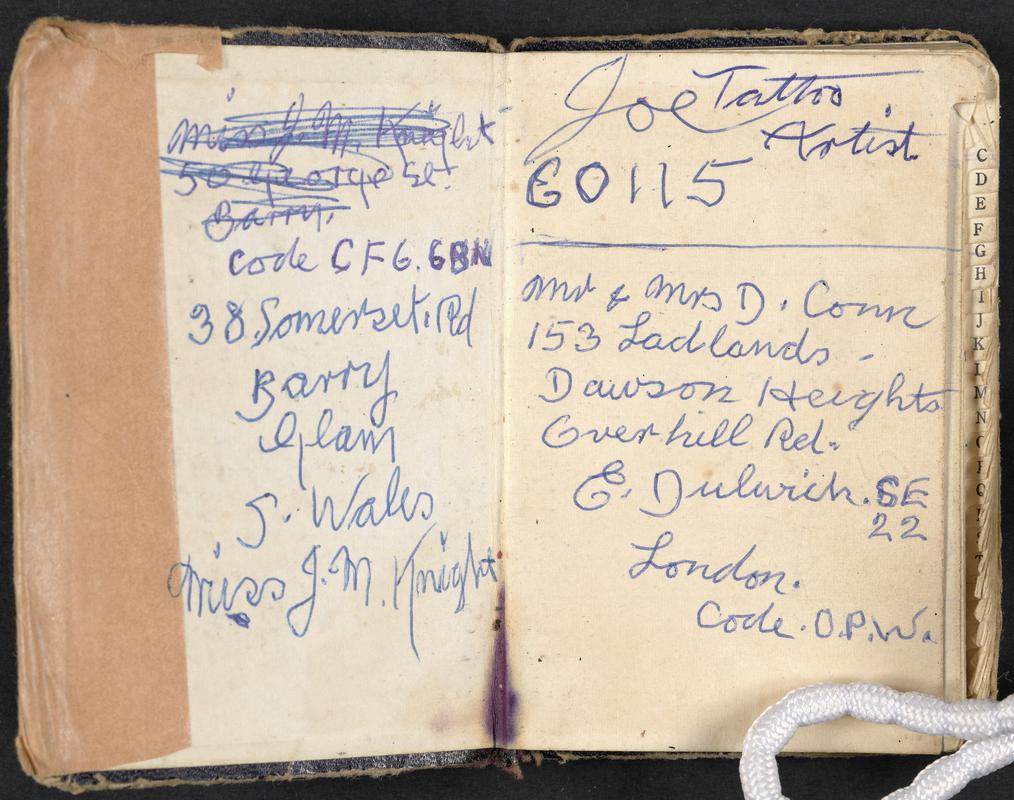 Miss J. M. Knight
50 George St.
Barry.
Code CF6. 6BN
38 Somerset. Rd
Barry
Glam
S. Wales
Miss J. M. Knight
Joe Tattoo
Artist.
60115
Mr & Mrs D. Conn
153 Ladlands -
Dawson Heights
Overhill Rd.
E. Dulwich. SE
22
London.
Code. O.P.W.
C
D
E
F
G
H
I
J
K
L
M
N
O
P
Q